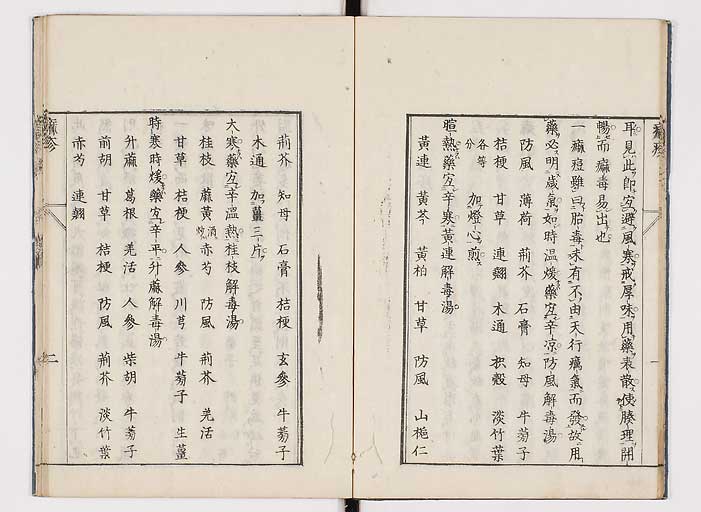 耳見此即宜避風寒戒厚味用藥表散使腠理開
暢而痲毒易出也
一痲痘雖曰胎毒未有不由天行癘氣而發故用
藥必明歲氣如時温煖藥宜辛凉防風解毒湯
防風 薄荷 荊芥 石膏 知母 牛蒡子
桔梗 甘草 連翹 木通 枳殼 淡竹葉
各等分 加燈心煎
暄熱藥宜辛寒黃連解毒湯
黃連 黃芩 黃柏 甘草 防風 山梔仁
荊芥 知母 石膏 桔梗 玄參 牛蒡子
木通 加薑三片
大寒藥宜辛温熱桂枝解毒湯
桂枝 麻黃 酒炒 赤芍 防風 荊芥 羌活
甘草 桔梗 人參 川芎 牛蒡子 生薑
時寒時煖藥宜辛平升麻解毒湯
升麻 葛根 羌活 人參 柴胡 牛蒡子
前胡 甘草 桔梗 防風 荊芥 淡竹葉
赤芍 連翹
二